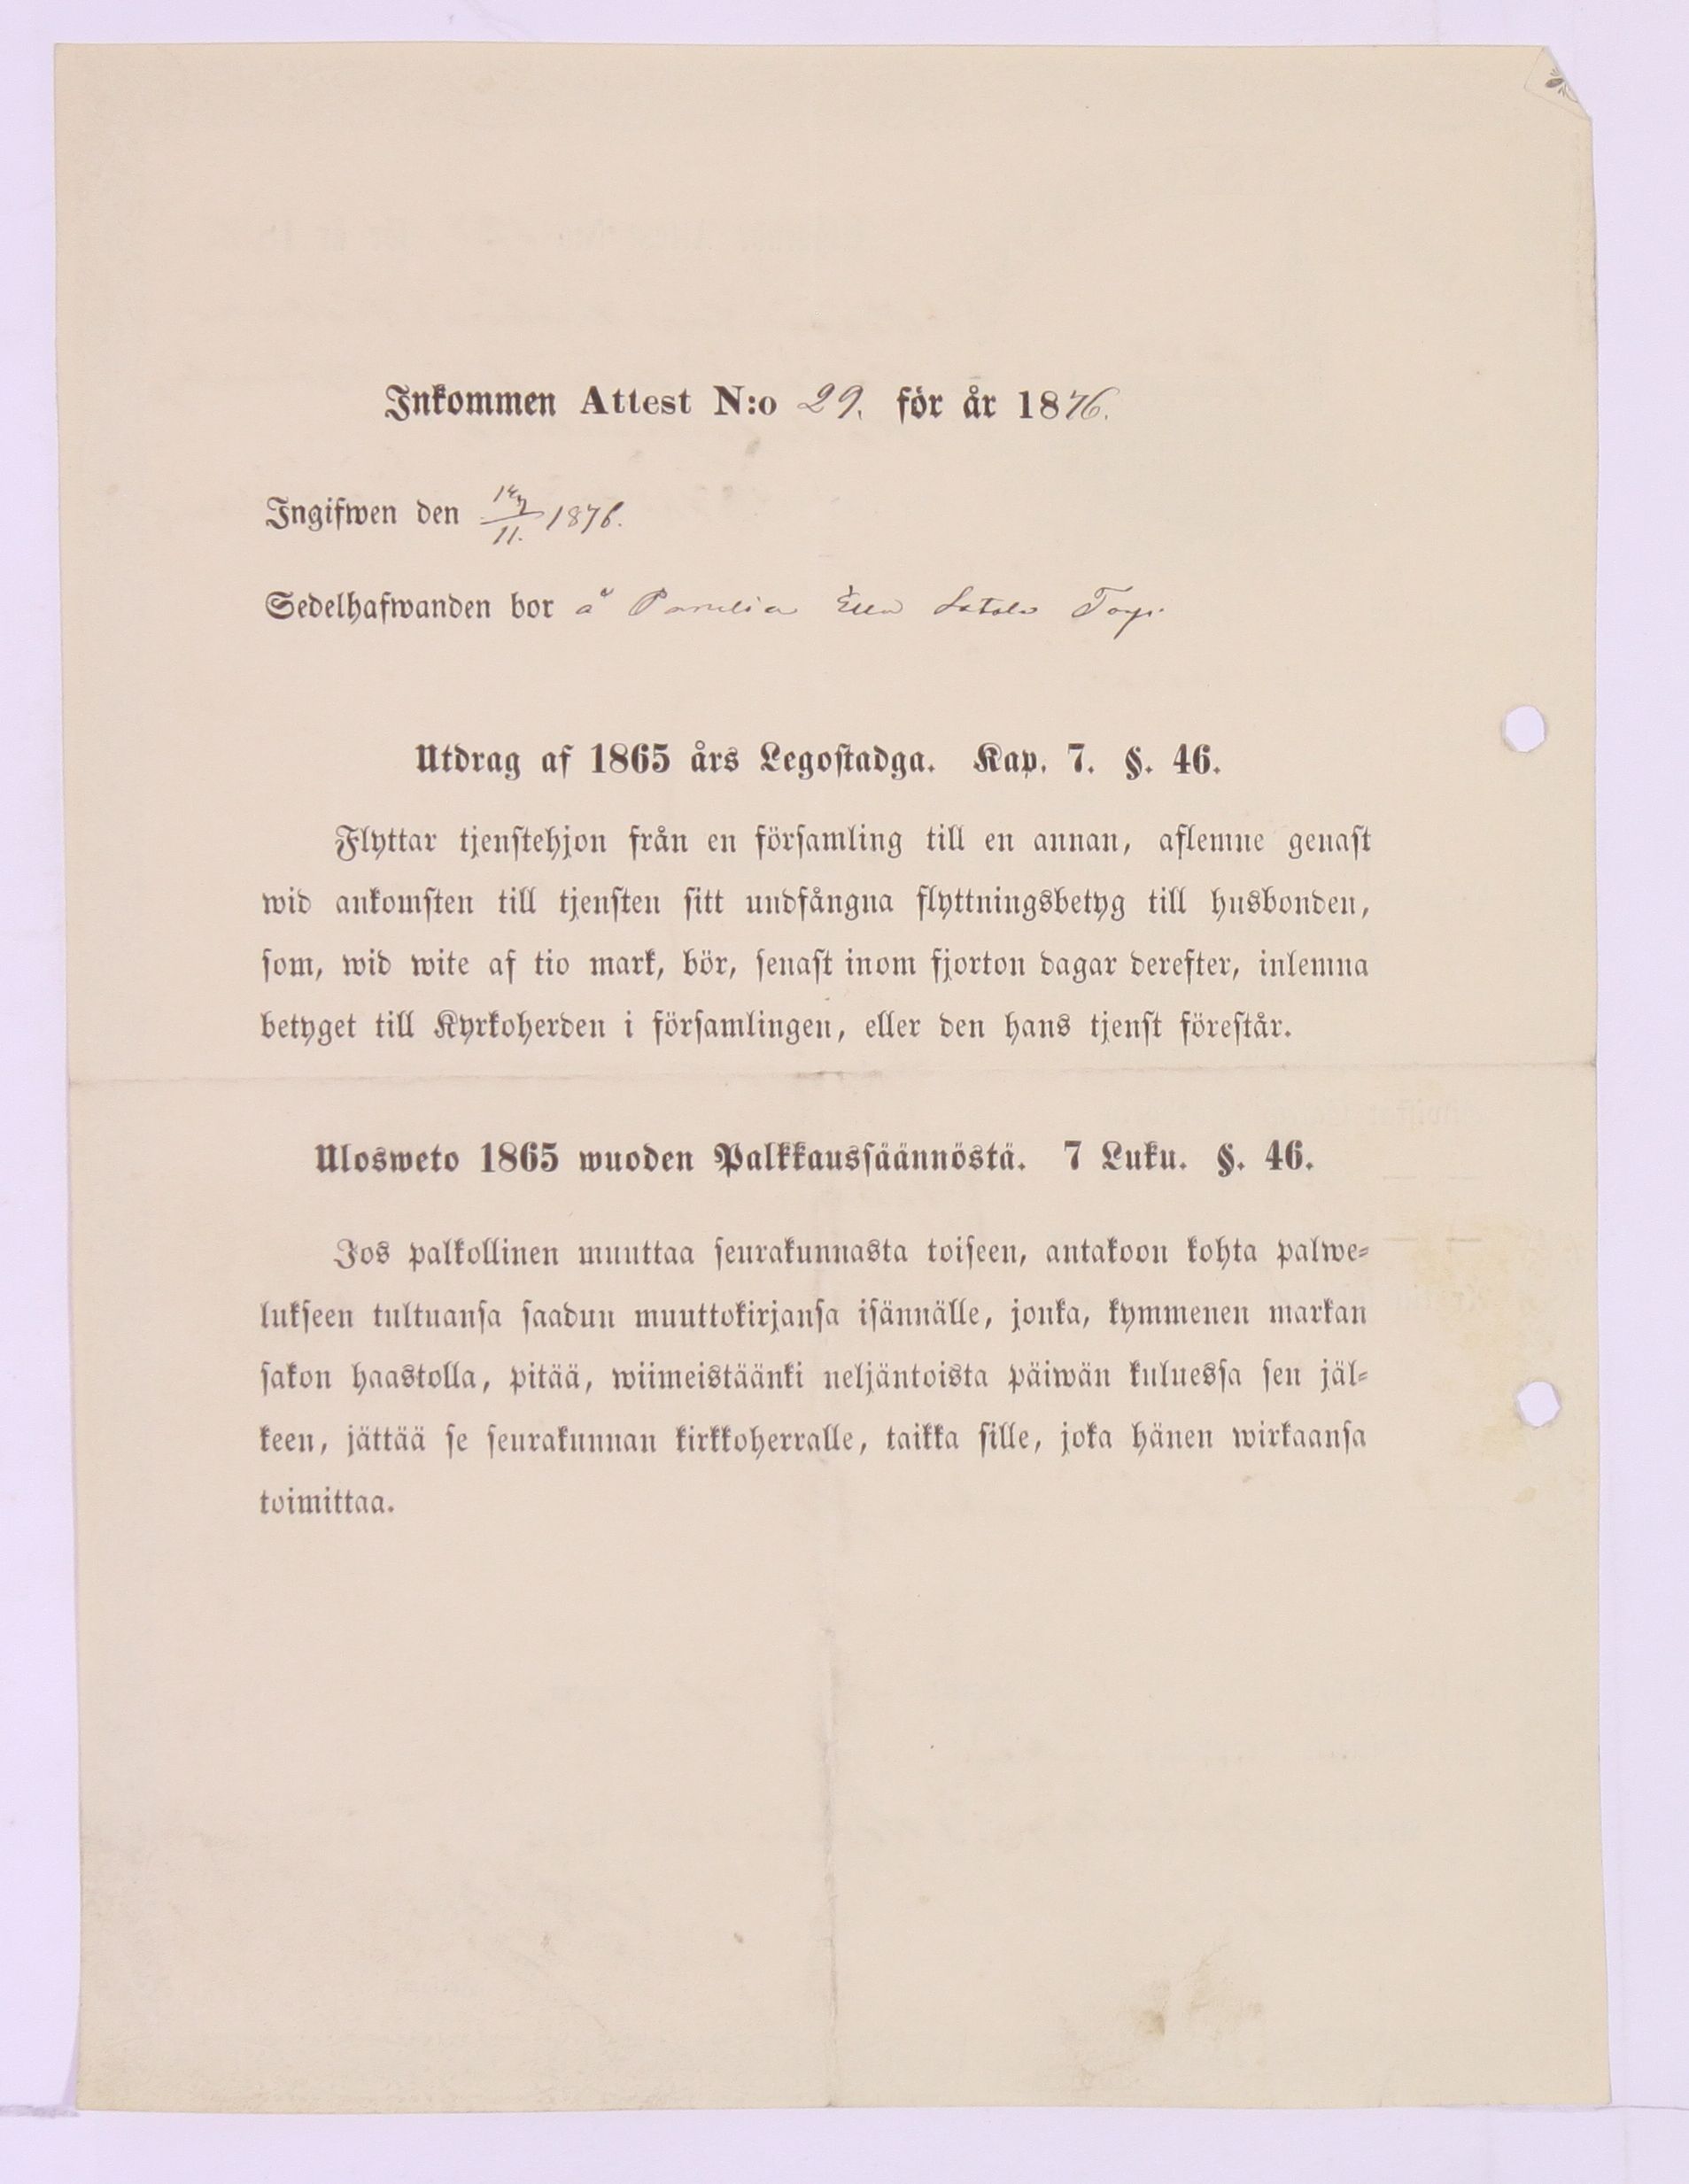 Inkommen Attest N:o 29. för år 1876.
Ingifwen den 11. 1876.
Sedelhafwanden bor å
Utdrag af 1865 års Legostadga. Kap. 7. §. 46.
Flyttar tjenstehjon från en församling till en annan, aflemne genast
wid ankomsten till tjensten sitt undfångna flyttningsbetyg till husbonden,
som, wid wite af tio mark, bör, senast inom fjorton dagar derefter, inlemna
betyget till Kyrkoherden i församlingen, eller den hans tjenst förestår.
Ulosweto 1865 wuoden Palkkaussäännöstä. 7 Luku. §. 46.
Jos palkollinen muuttaa seurakunnasta toiseen, antakoon kohta palwe-
lukseen tultuansa saadun muuttokirjansa isännälle, jonka, kymmenen markan
sakon haastolla, pitää, wiimeistäänki neljäntoista päiwän kuluessa sen jäl-
keen, jättää se seurakunnan kirkkoherralle, taikka sille, joka hänen wirkaansa
toimittaa.